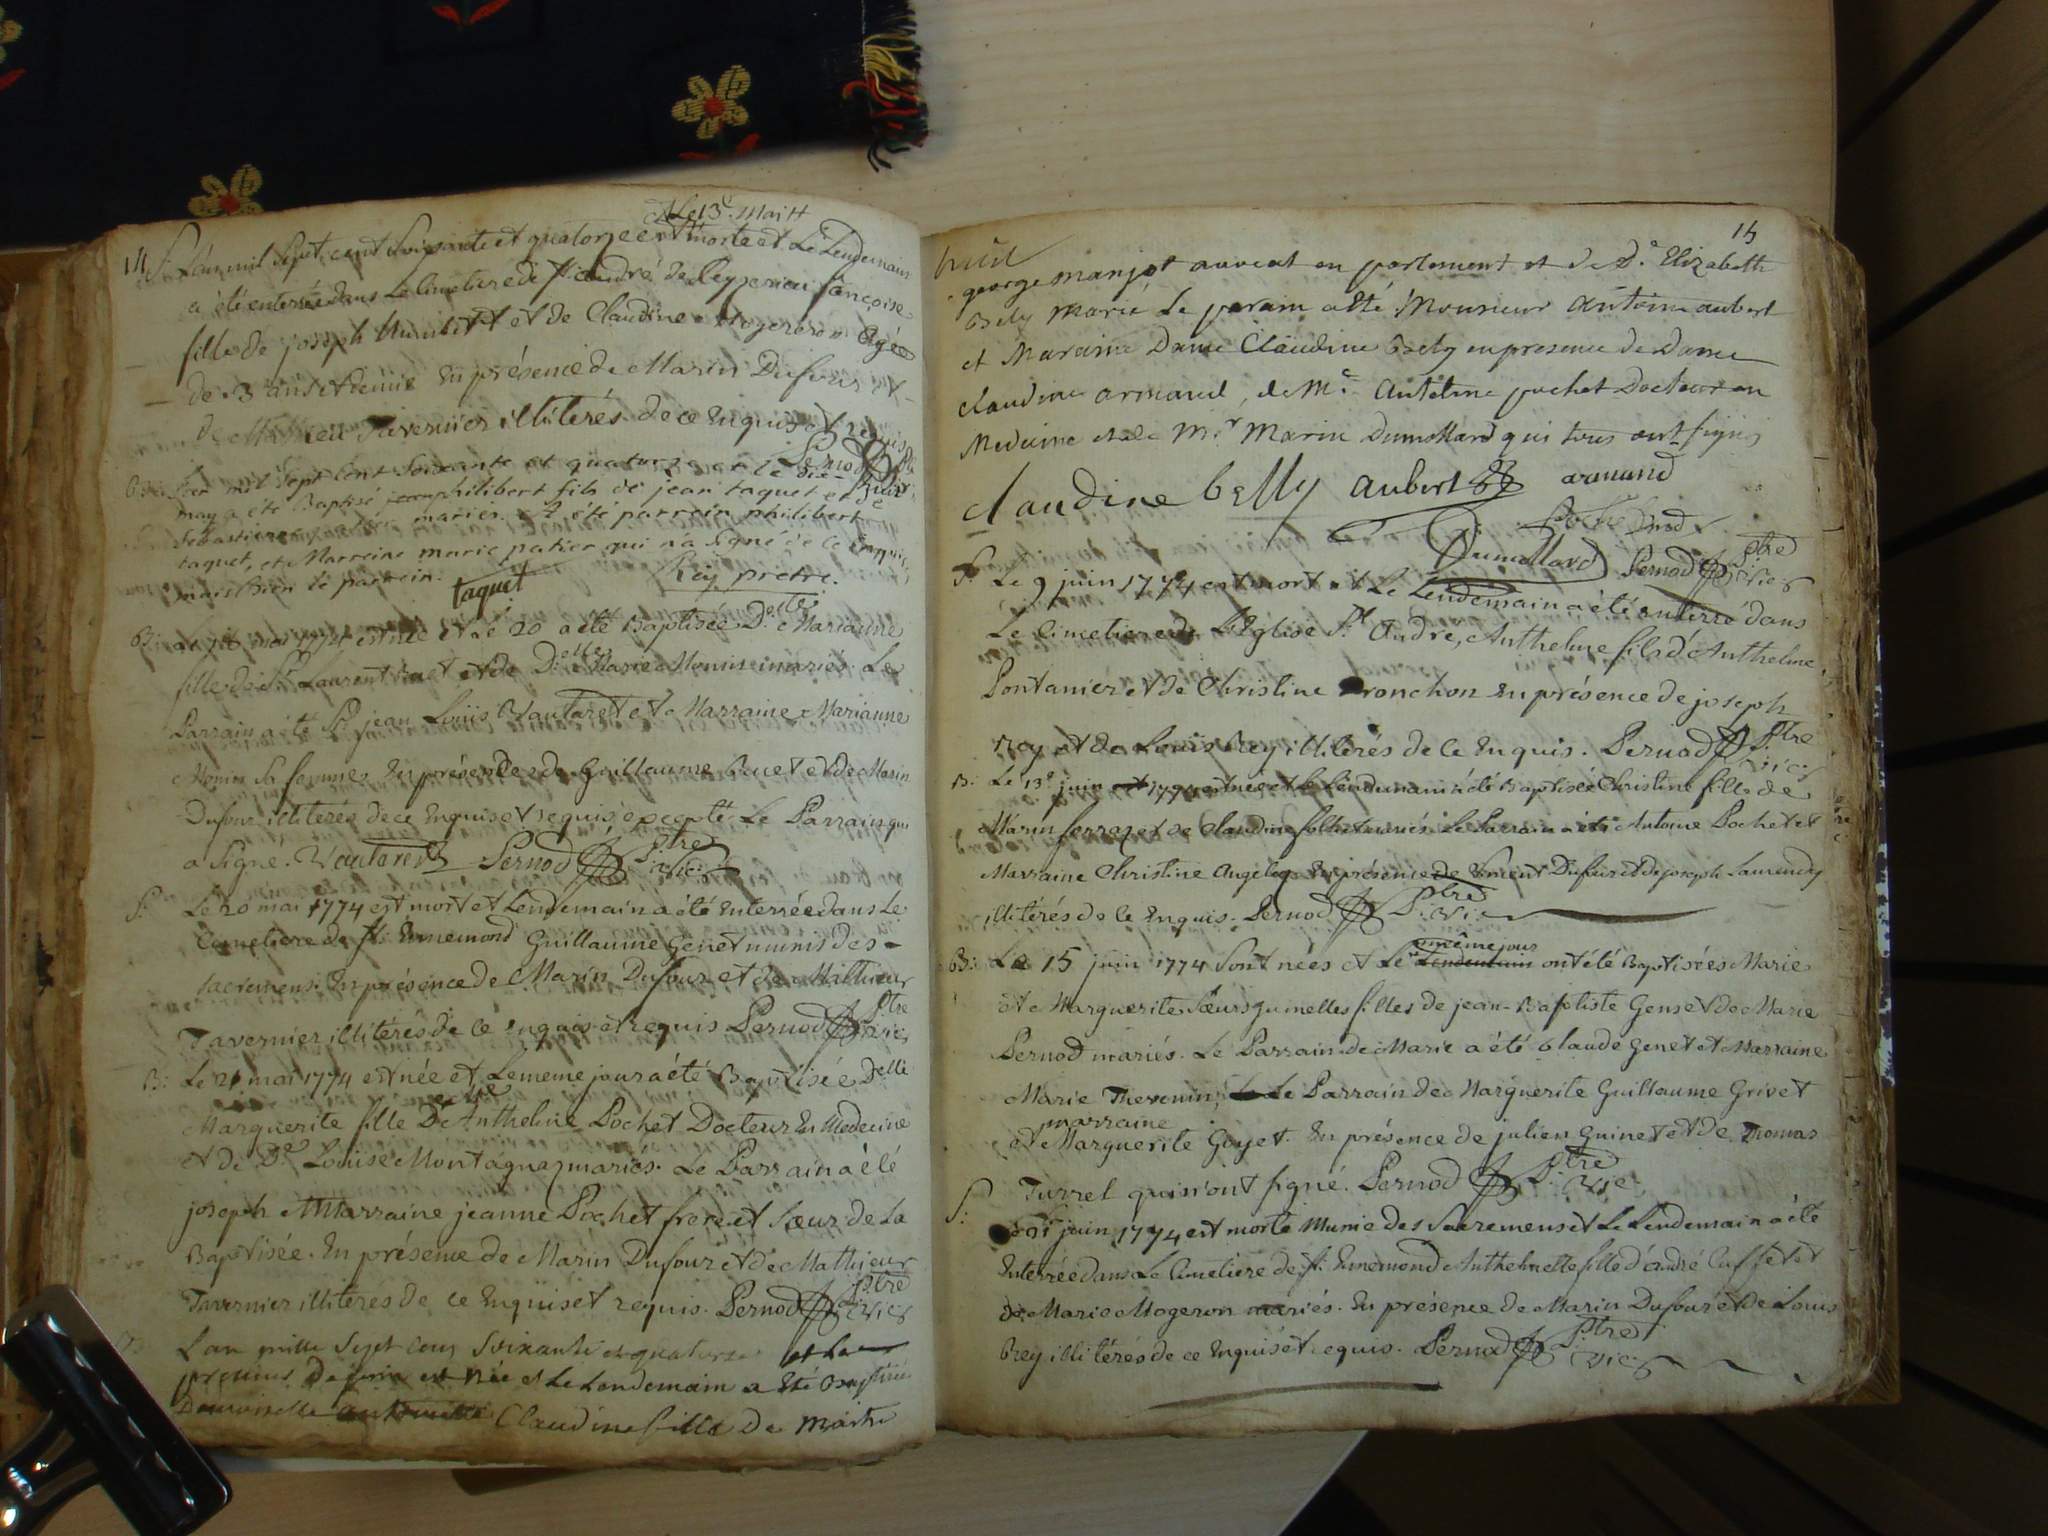 14
Le 13e Mai
S: L'an mil Sept cent Soixante et quatorze est morte et Le Lendemain
a été enterrée dans Le Cimetiere de St. andré de françoise
fille de joseph humbert et de Claudine Mogeron Agée
de 3 ans et demie En présence de Marin Dufour et
de Mathieu Tavernier illiterés de ce Enquis et requis
Pernod Ptre Vic.
B: L'an mil Sept Cent Soixante et quatorze et le dix
may a été Baptisé philibert fils de jean taquet et de
Sebastienne mariés. a été parrein philibert
taquet, et Marreine marie patier qui n'a Signé de ce Enquise,
mais bien le parrein. taquet Rey prêtre.
B: Le 18 mai 1774 est née et Le 20 a été Baptisée Delle Marianne
fille de Sr Laurent et de Delle Marie Monin mariés. Le
Parrain a été Sr jean Louïs Vautaret et Marraine Marianne
Monin Sa femme. En présence de Guillaume et de Marin
Dufour illiterés de ce Enquis et requis excepté Le Parrain qui
a Signé. Vautaret Pernod Ptre Vic.
S: Le 20 mai 1774 est mort et Lendemain a été Enterrée dans Le
Cimetiere de St. Ennemond Guillaume Genet munis des
sacremens. En présence de Marin Dufour et de Mathieu
Tavernier illitérés de ce enquis et requis Pernod Ptre Vic.
B: Le 21 mai 1774 est née et Le meme jour a été Baptisée Delle
Marguerite fille De Anthelme Pochet Docteur En Medecine
et de De Louise Montagnaz mariés. Le Parrain a été
joseph et Marraine jeanne Pochet frere et Sœur de La
Baptisée. En présence de Marin Dufour et de Mathieu
Tavernier illiteres de ce Enquis et requis. Pernod Ptre Vic.
B L'an mille Sept Cens Soixante et quatorze et Le
premier De juin est Née et Le Lendemain a Eté Baptisée
Demoiselle antoinette Claudine fille De Maitre
15
george manjot avocat en parlement et de De Elizabeth
Bely Marié Le parain a Eté Monsieur Antoine aubert
et Maraine Dame Claudine Bely en presence de Dame
claudine armand, de Mr. Antelme pochet Docteur en
Medecine et de Mr Marin Dumollard qui tous ont signé
claudine belly aubert armand
Pochet Dumollard Pernod Ptre Vic
S: Le 9 juin 1774 est mort et Le Lendemain a été enterré dans
Le Cimetiere de L'Eglise St. André, Anthelme fils d'Anthelme
Pontanier et de Christine Tronchon En présence de joseph
Rey et de Louis Rey illiterés de Ce Enquis. Pernod Ptre Vic.
B: Le 13e juin 1774 est née et le Lendemain a été Baptisée Christine fille de
Marin ferraz et de Claudine follet mariés. Le Parrain a été Antoine Pochet et
Marraine Christine En présence de Vincent Dufour et de joseph Laurency
illitérés de Ce Enquis. Pernod Ptre Vic
B: Le 15 juin 1774 Sont nées et Le même jour Lendemain ont été Baptisées Marie
et Marguerite Sœurs jumelles filles de jean-Baptiste Genset de Marie
Pernod mariés. Le Parrain de Marie a été Claude Genet et Marraine
Marie Thevenin; Le Parrain de Marguerite Guillaume Grivet
et marraine Marguerite Goyet. En présence de julien Guinet et de Thomas
Turrel qui n'ont signé. Pernod Ptre Vic.
S: juin 1774 est morte Munie des Sacremens et Le Lendemain a été
Enterrée dans Le Cimetiere de St. Ennemond Anthelmette fille d'andré Cuffet et
de Marie Mogeron mariés. En présence de Marin Dufour et de Louis
Rey illitérés de ce Enquis et requis. Pernod Ptre Vic.